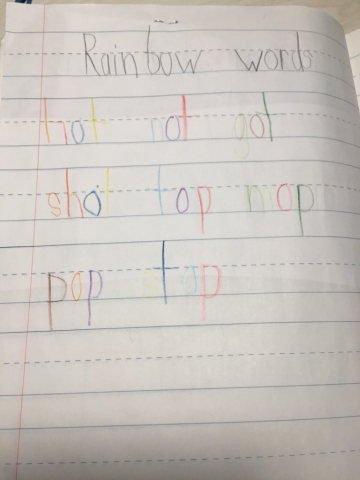 Rainbow words
hot not got
shot top mop
pop stop